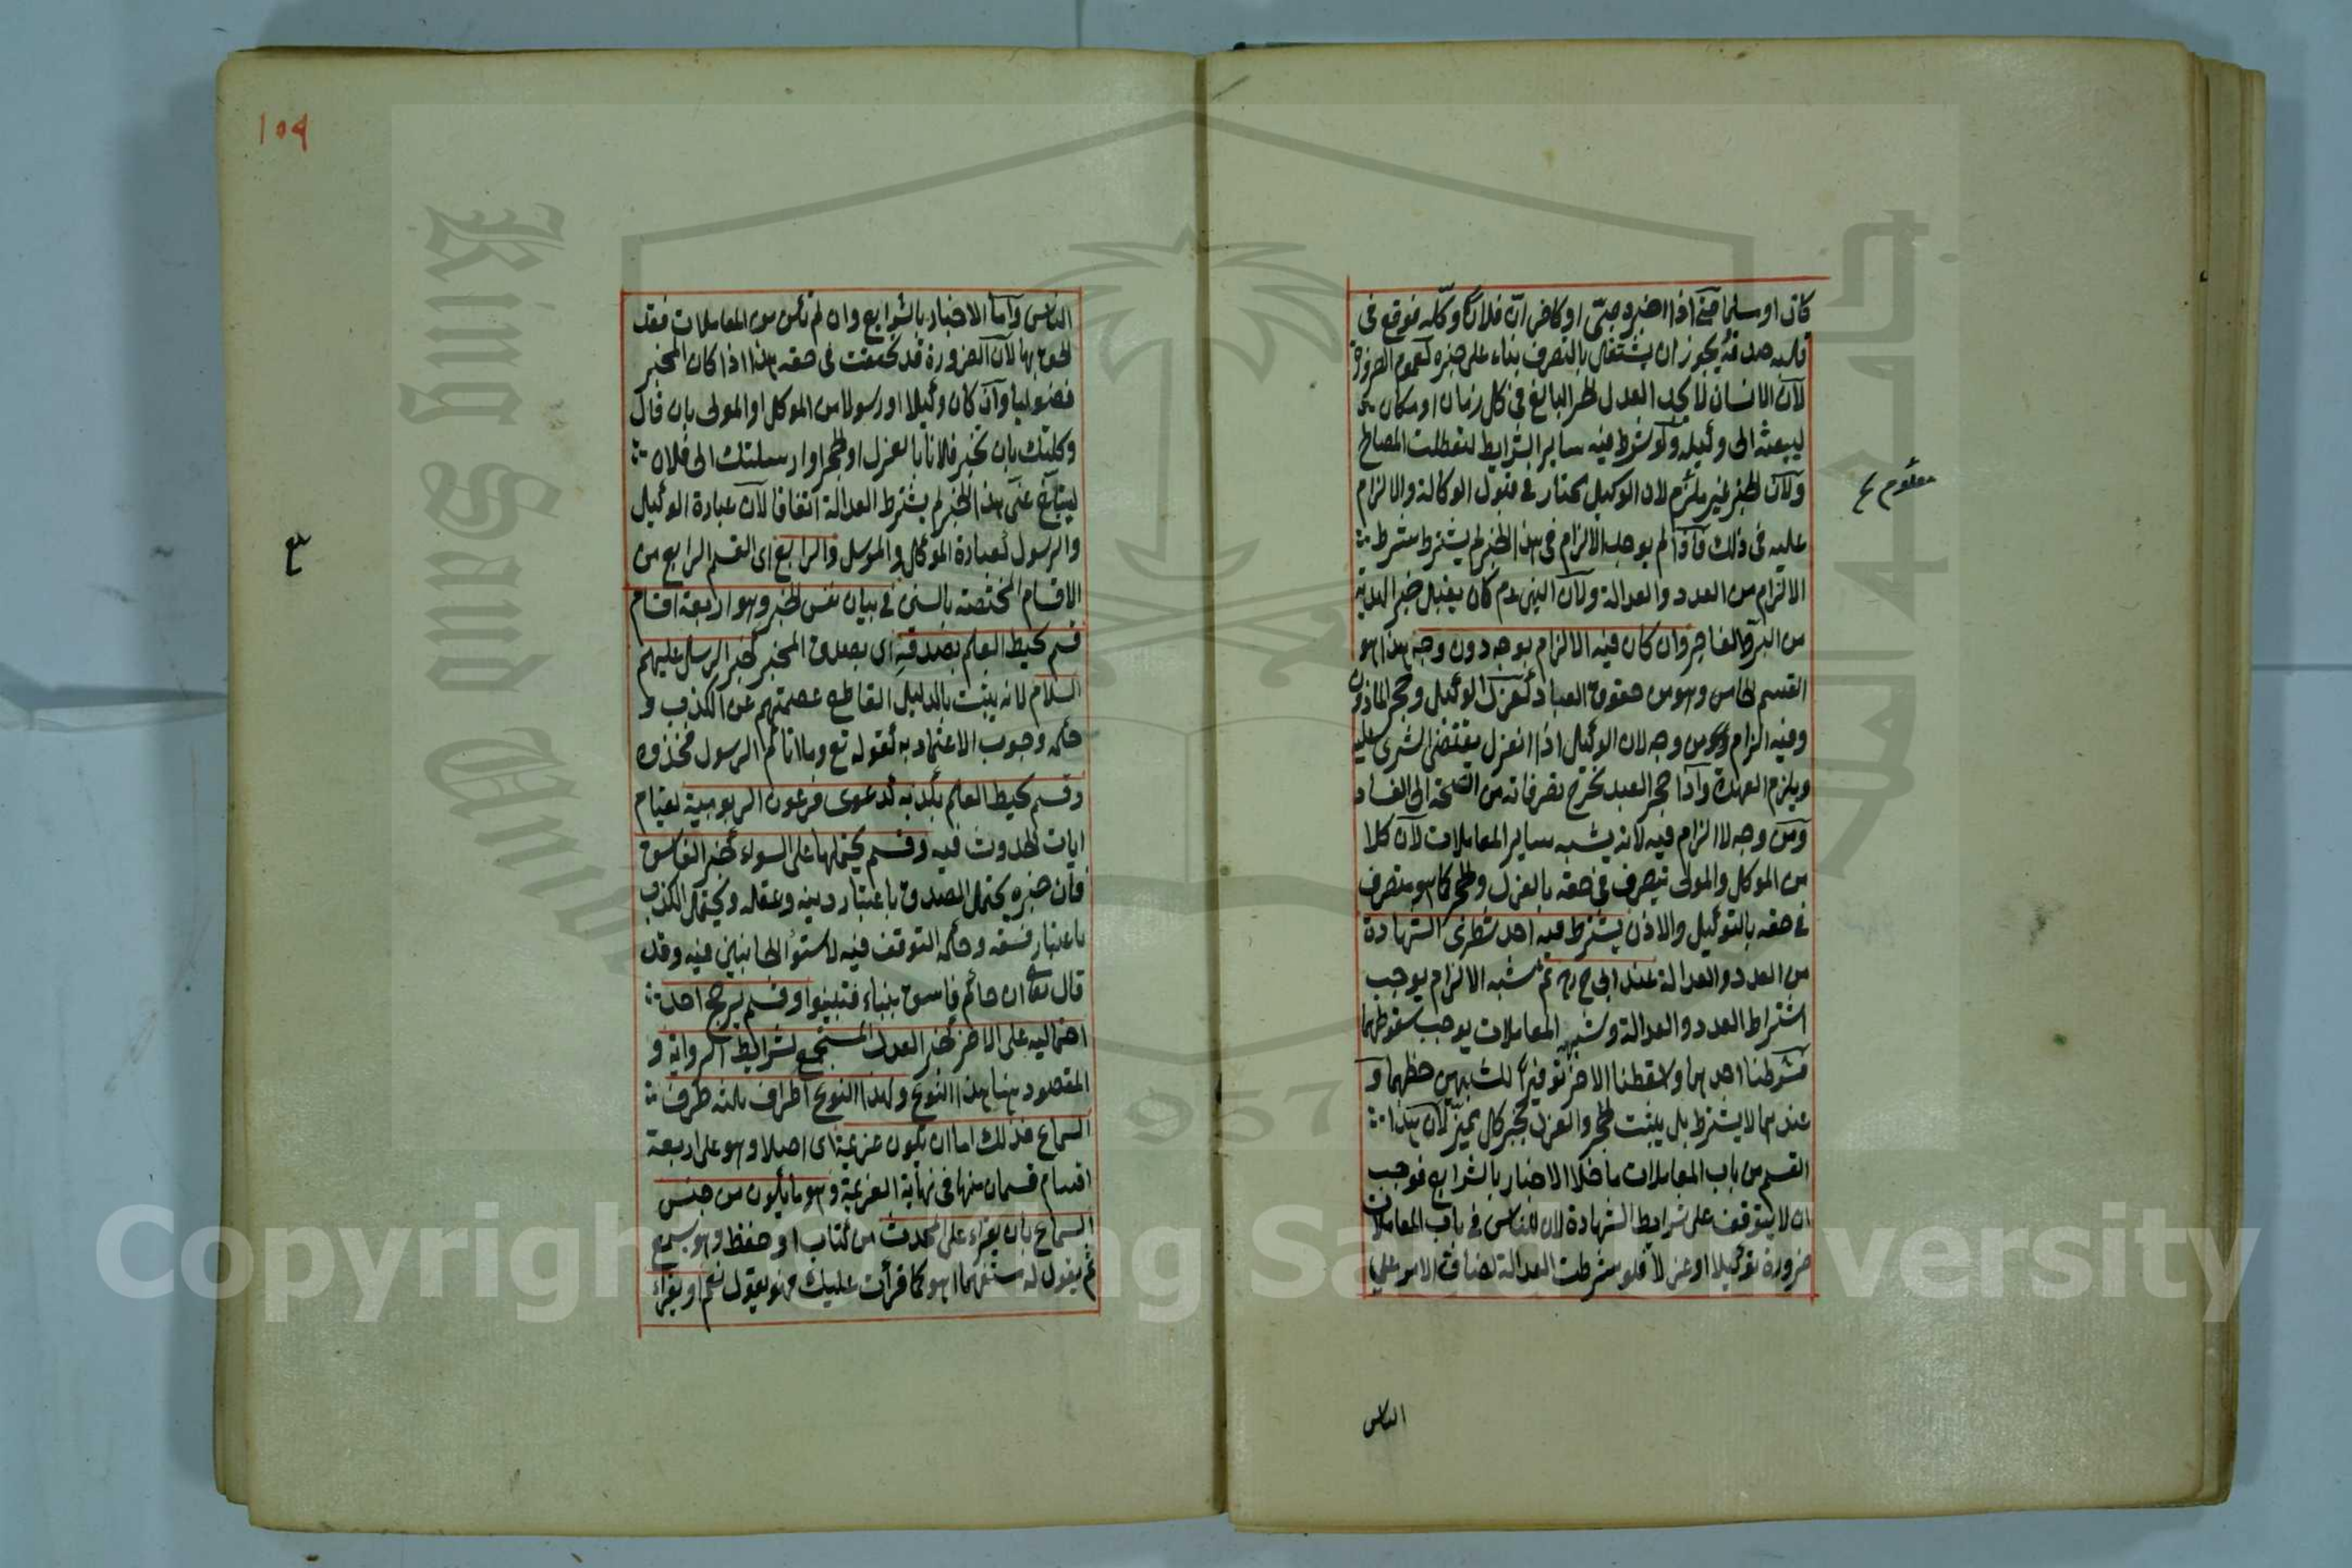 كان او سلما حتى اذا اخبره صبى او كافر ان فلانا وكله فوقع فى
قلبه صدقه يجوز ان يشتغل بالتصرف بناء على خبره لعموم الضرورة
لان الانسان لا يجد العدل الحر البالغ فى كل زمان او مكان
ليبعثه الى وكيله ولو شرط فيه ساير الشرايط لتعطلت المصالح
ولان الخبر غير ملزم لان الوكيل مختار فى قبول الوكالة والالزام
عليه فى ذلك فاذا لم يوجب الالزام فى هذا الخبر لم يشترط شرط
الالزام من العدد والعدالة ولان النبى عم كان يقبل خبر الهدية
من البر والفاجر وان كان فيه الالزام بوجه دون وجه هذا هو
القسم الخامس وهو من حقوق العباد كعزل الوكيل وحجر الماذون
وفيه الزام من وجه لان الوكيل اذا انعزل يقتضى الشرى عليه
ويلزم العهدة واذا حجر العبد تخرج تصرفاته من الصحة الى الفساد
ومن وجه لا الزام فيه لانه يشبه ساير المعاملات لان كلا
من الموكل والمولى يتصرف فى حقه بالعزل والحجر كما هو متصرف
فى حقه بالتوكيل والاذن يشترط فيه احد شطرى الشهادة
من العدد والعدالة عند ابى ح رح ثم شبه الالزام يوجب
اشتراط العدد والعدالة وشبه المعاملات يوجب سقوطهما
فشرطنا احدهما واسقطنا الاخر توفيرا للشبهين حظهما و
عندهما لا يشترط بل يثبت الحجر والعزل بخبر كل مميز لان هذا
القسم من باب المعاملات ما خلا الاخبار بالشرايع فوجب
ان لا يتوقف على شرايط الشهادة لان للناس فى باب المعاملات
ضرورة توكيلا او عزلا فلو شرطت العدالة لضاق الامر على
معلوم
الناس
١٥٩
الناس واما الاخبار بالشرايع وان لم تكن من المعاملات فقد
الحق بها لان الضرورة قد تحققت فى حقه هذا اذا كان المخبر
فضوليا وان كان وكيلا او رسولا من الموكل او المولى بان قال
وكلتك بان تخبر فلانا بالعزل او الحجر او ارسلتك الى فلان
ليتبلغ عنى هذا الخبر لم يشترط العدالة اتفاقا لان عبارة الوكيل
والرسول كعبارة الموكل والمرسل والرابع اى القسم الرابع من
الاقسام المختصة بالسنن فى بيان نفس الخبر وهو اربعة اقسام
قسم يحيط العلم بصدقه اى بصدق المخبر كخبر الرسل عليهم
السلام لانه يثبت بالدليل القاطع عصمتهم عن الكذب و
حكمه وجوب الاعتماد به لقوله تع وما اتاكم الرسول فخذوه
وقسم يحيط العلم بكذبه كدعوى فرعون الربوبية لقيام
ايات الحدوث فيه وقسم يحتملها على السواء كخبر الفاسق
فان خبره يحتمل الصدق باعتبار دينه وعقله ويحتمل الكذب
باعتبار فسقه وحكمه التوقف فيه لاستوا الجانبين فيه وقد
قال تعالى ان جائكم فاسق بنباء فتبينوا وقسم يرجح احد
احتماليه على الاخر كخبر العدل المستجمع لشرايط الرواية و
المقصود هنا هذا النوع ولهذا النوع اطراف ثلثه طرف
السماع فذلك اما ان يكون عزيمة اى اصلا وهو على اربعة
اقسام قسمان منها فى نهاية العزيمة وهو ما يكون من جنس
السماع بان يقراء على المحدث من كتاب او حفظ وهو يسمع
ثم يقول له مستفهما اهو كما قرات عليك فهو يقول نعم او يقراء